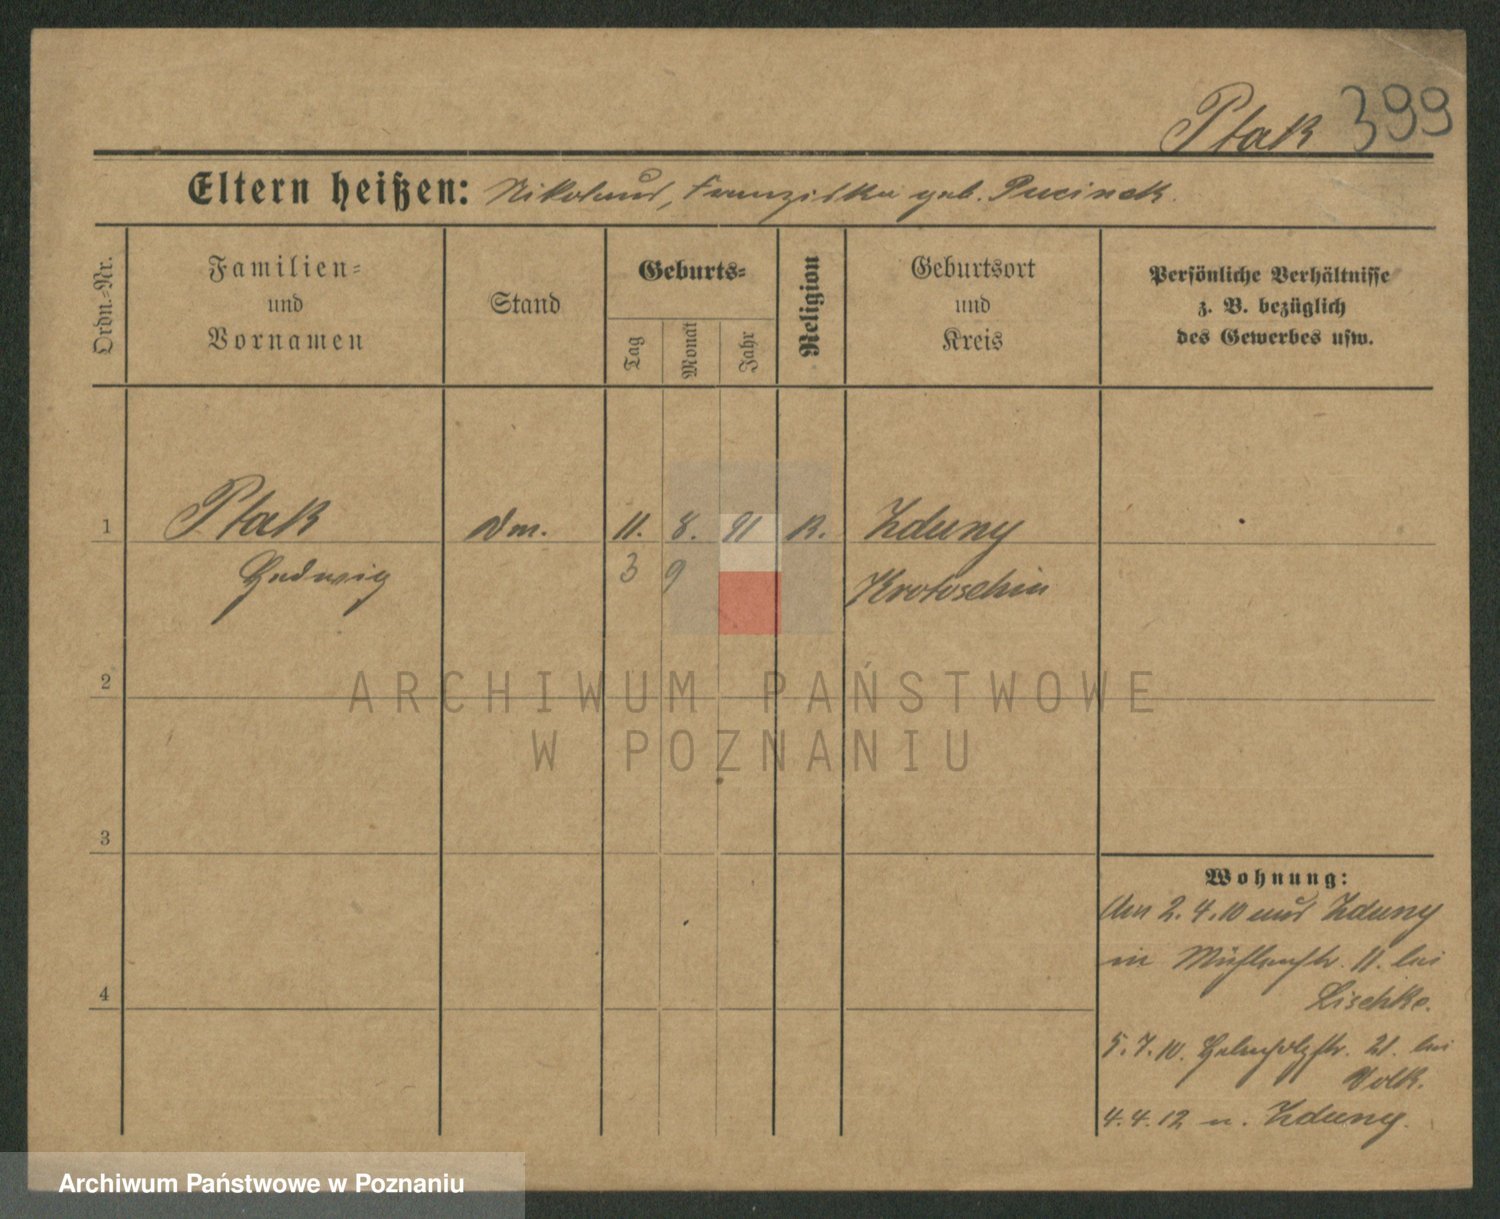 Ptak 399
Eltern heißen: Nikolaus, Franziska geb.
Ordn.-Nr.
Familien-
und
Vornamen
Stand
Geburts-
Tag
Monat
Jahr
Religion
Geburtsort
und
Kreis
Persönliche Verhältnisse
z. B. bezüglich
des Gewerbes usw.
1 Ptak 11. 8. 91 K. Zduny
Hedwig 3 9 Krotoschin
2
ARCHIWUM PAŃSTWOWE
W POZNANIU
3
4
Wohnung:
Am 2.4.10 aus Zduny
in Mühlenstr. 11. bei
Lischke.
5.7.10. 21. bei
Volk.
4.4.12 n. Zduny.
Archiwum Państwowe w Poznaniu